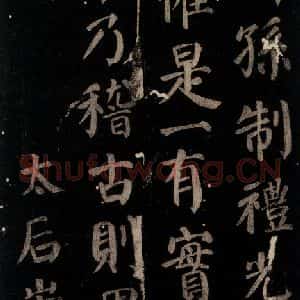 孫制禮光
惟是一有實
乃稽古則
太后
Shufawang.CN